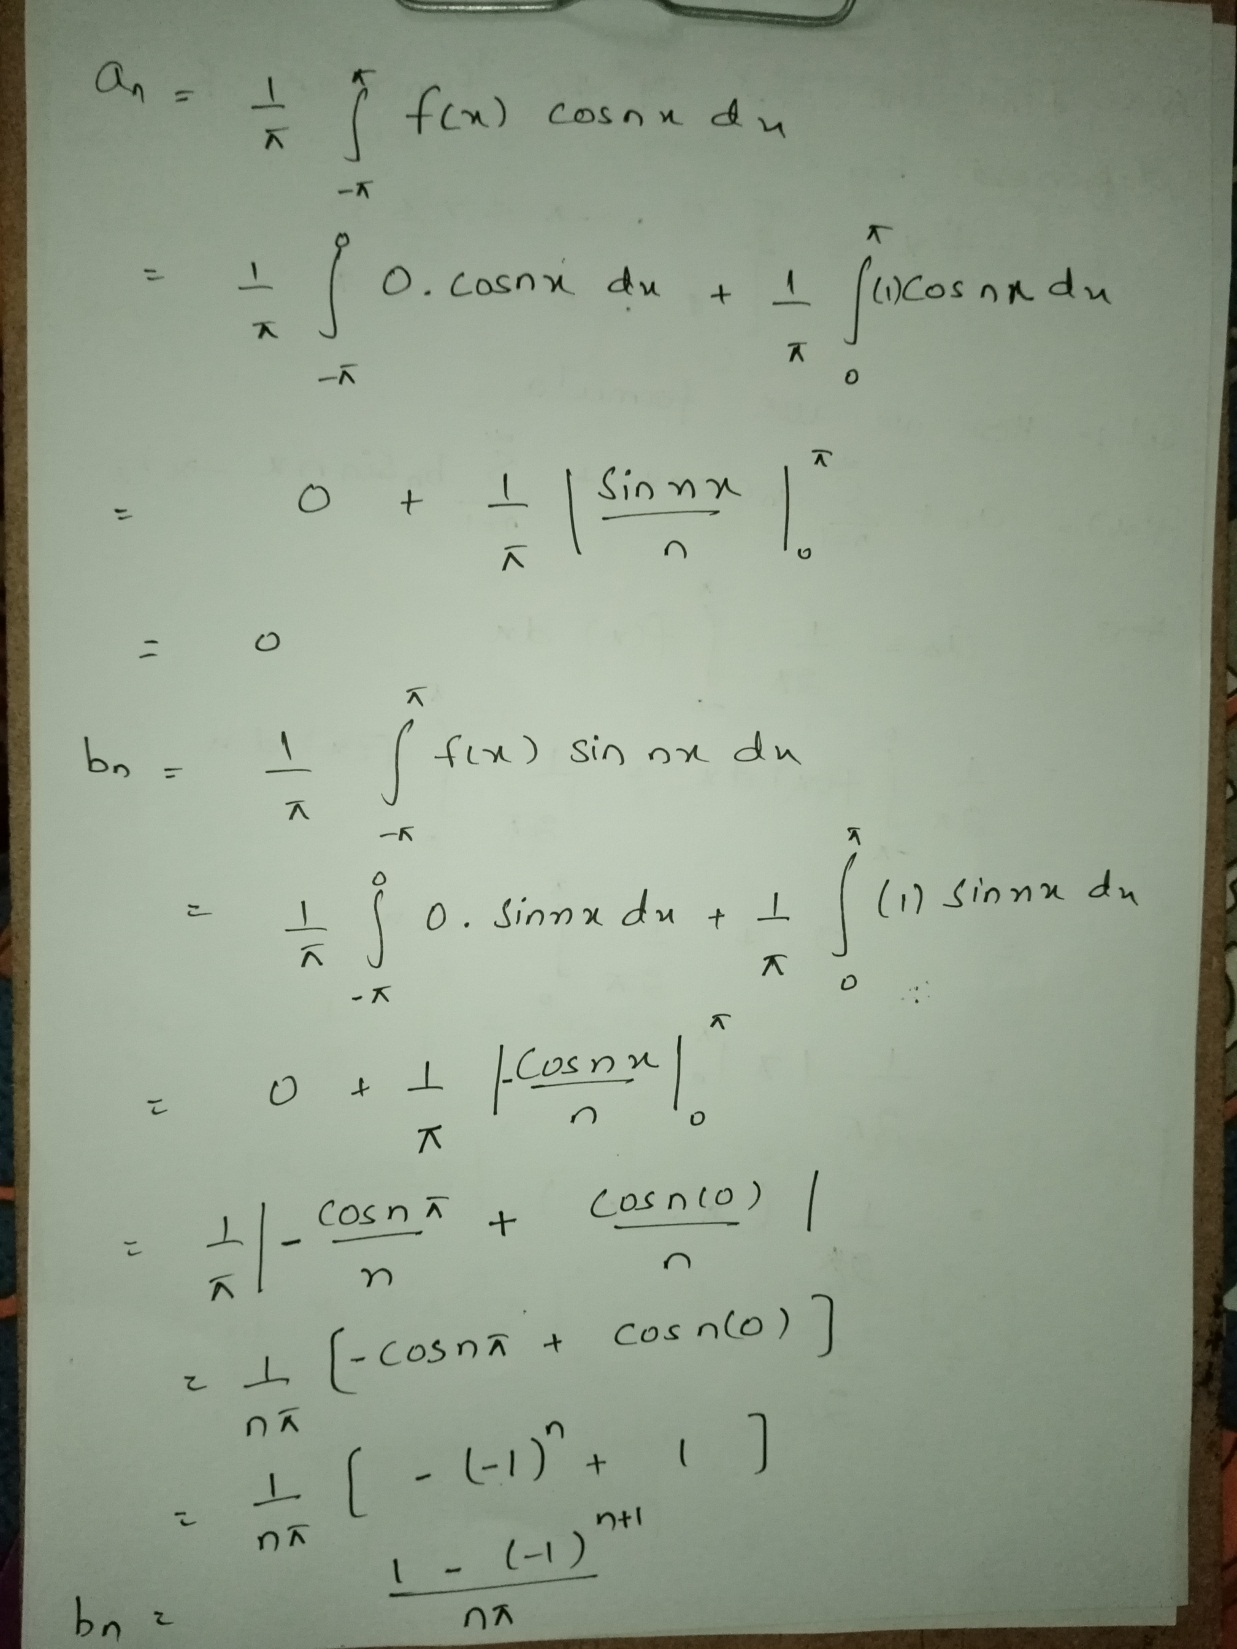 an = 1/π ∫_{-π}^{π} f(x) cosnx dx
= 1/π ∫_{-π}^{0} 0. cosnx dx + 1/π ∫_{0}^{π} (1)cosnx dx
= 0 + 1/π | sin nx / n |_{0}^{π}
= 0
bn = 1/π ∫_{-π}^{π} f(x) sin nx dx
= 1/π ∫_{-π}^{0} 0. sinnx dx + 1/π ∫_{0}^{π} (1) sinnx dx
= 0 + 1/π | -cosnx / n |_{0}^{π}
= 1/π | - cosnπ / n + cosn(0) / n |
= 1/nπ [-cosnπ + cosn(0)]
= 1/nπ [ - (-1)^n + 1 ]
bn = 1 - (-1)^{n+1} / nπ